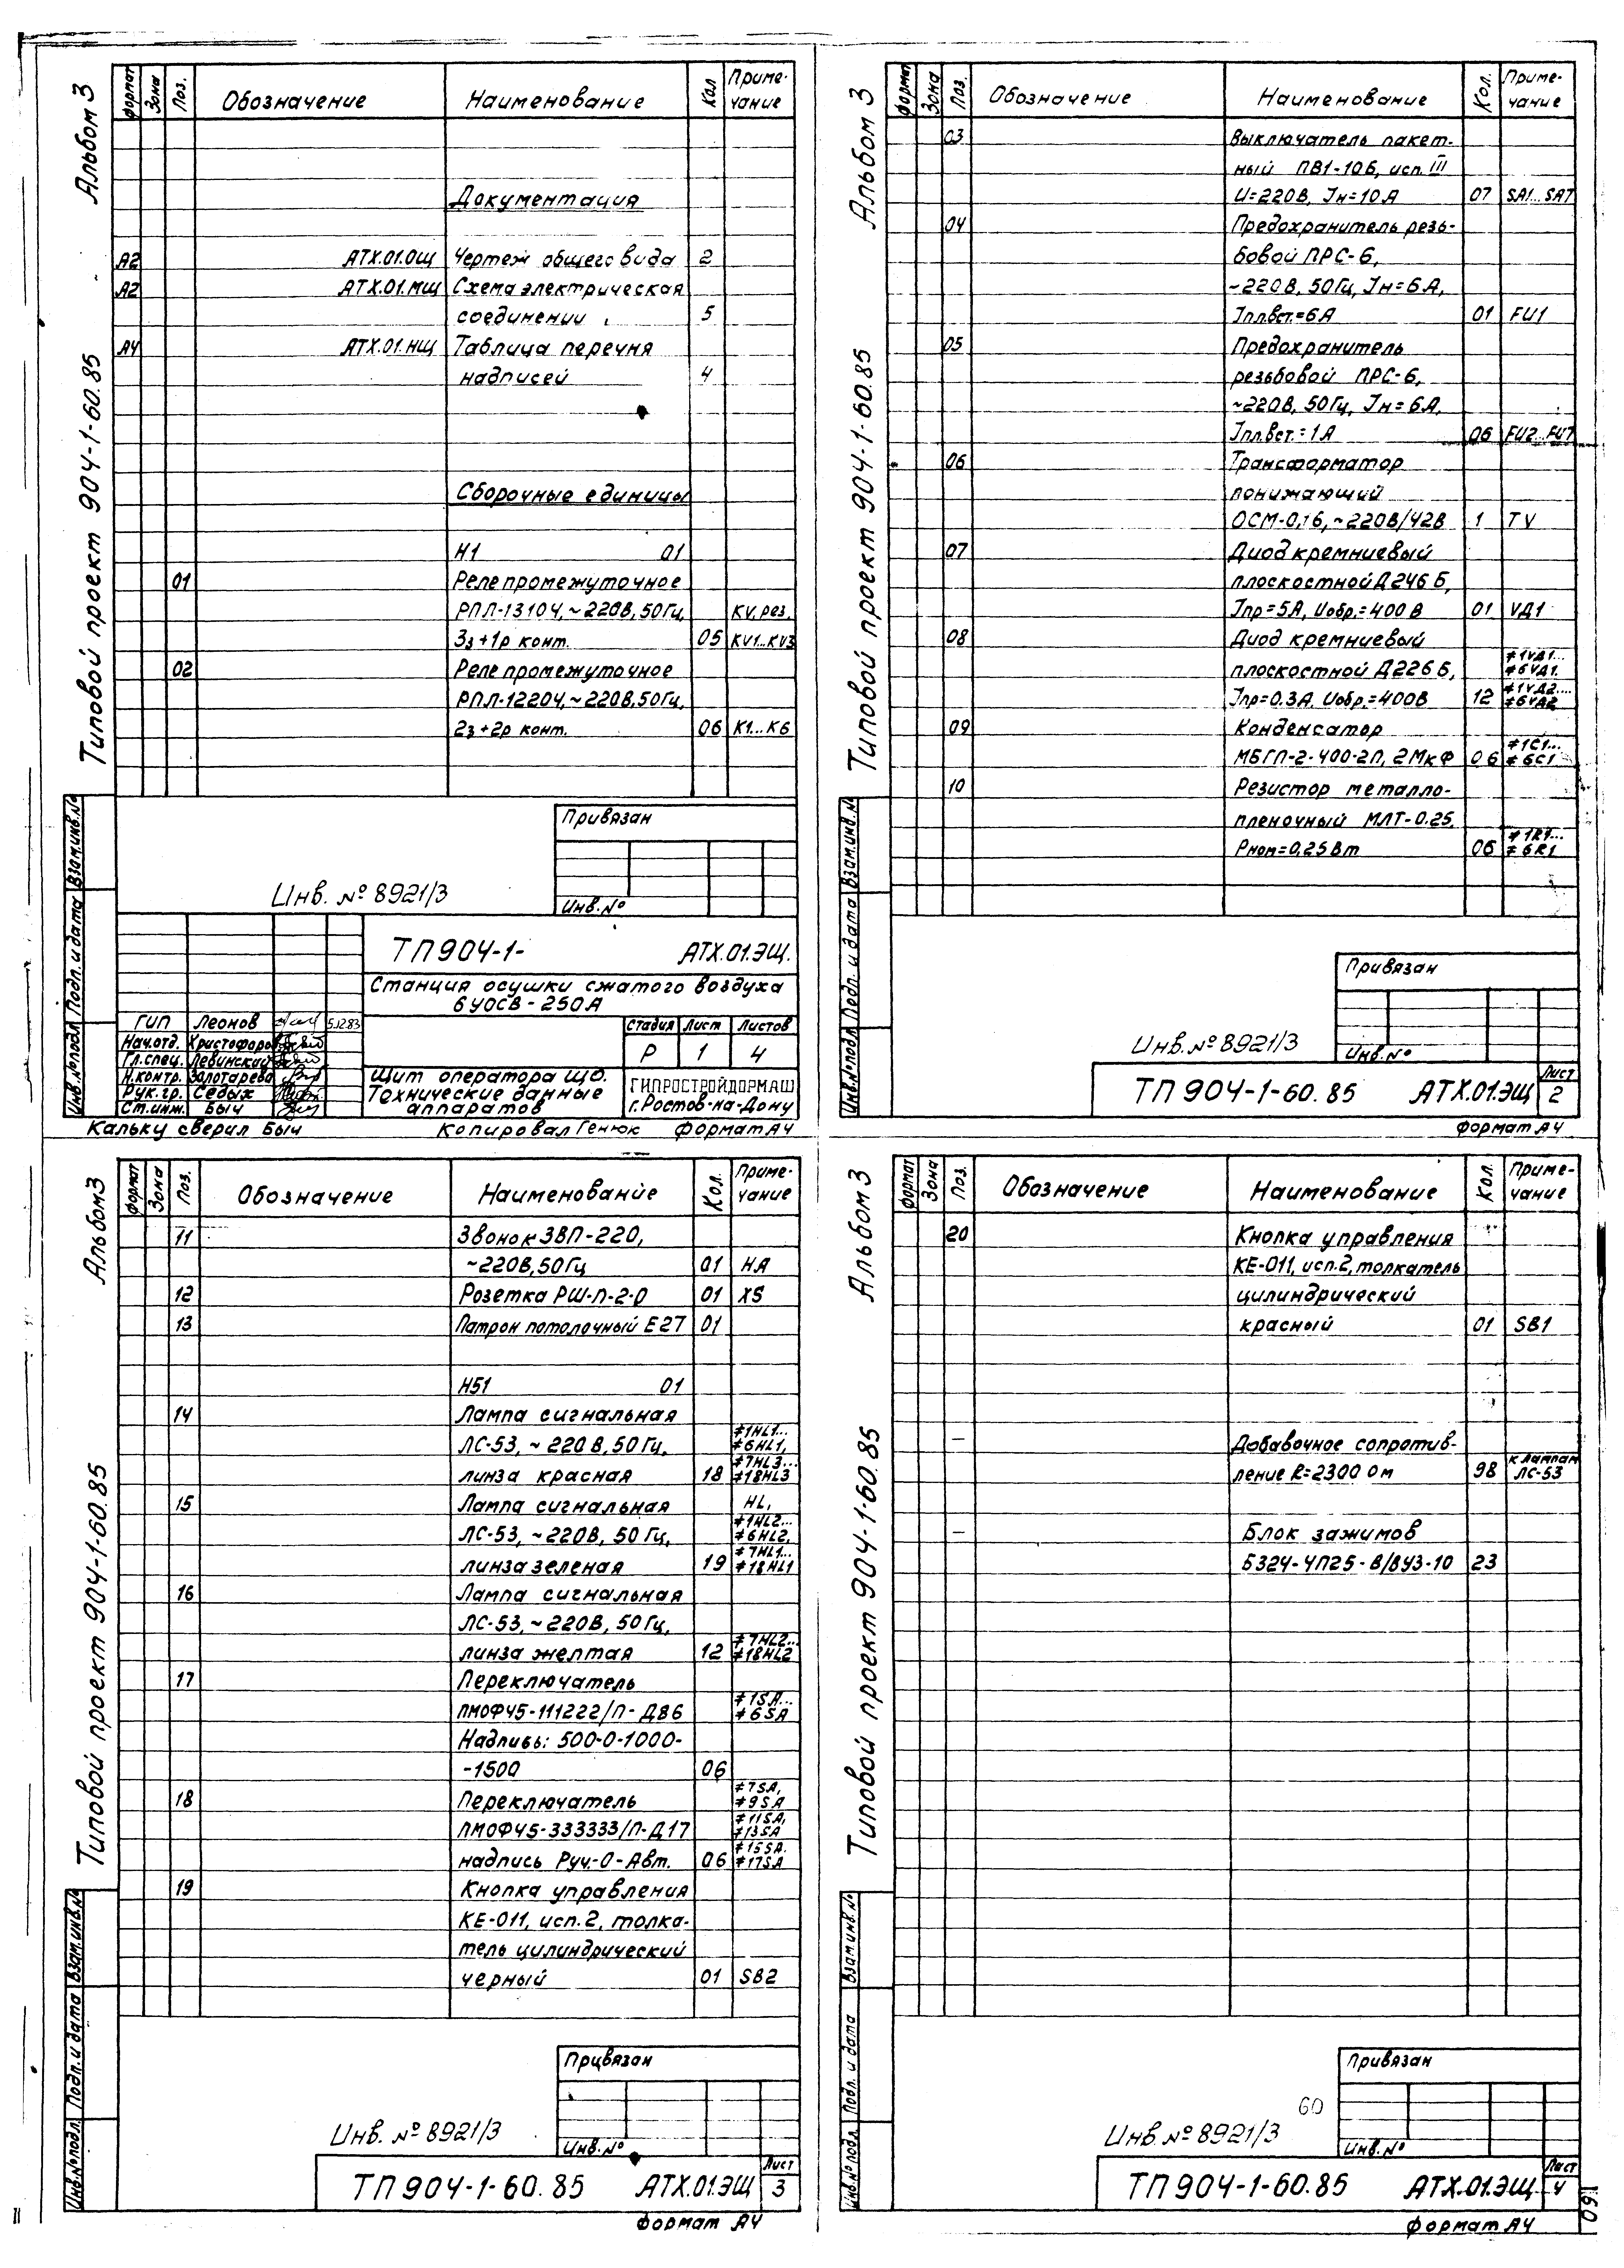 Альбом 3
Типовой проект 904-1-60.85
Формат Зона Поз. Обозначение Наименование Кол Приме-
чание
Документация
А2 АТХ.01.ОЩ Чертеж общего вида 2
А2 АТХ.01.МЩ Схема электрическая
соединении 5
А4 АТХ.01.НЩ Таблица перечня
надписей 4
Сборочные единицы
Н1 01
01 Реле промежуточное
РПЛ-13104, ~220В, 50Гц, KV, рез.
3з+1р конт. 05 KV1...KV3
02 Реле промежуточное
РПЛ-12204, ~220В, 50Гц,
2з+2р конт. 06 К1...К6
Привязан
Инв. № 8921/3
Инв. №
ТП 904-1- АТХ.01.ЭЩ.
Станция осушки сжатого воздуха
6УОСВ-250А
ГИП Леонов 5.12.83
Нач.отд. Христофоров
Гл.спец. Левинский
Н.контр. Золотарева
Рук.гр. Седых
Ст.инж. Быч
Стадия Лист Листов
Р 1 4
Щит оператора ЩО.
Технические данные
аппаратов
ГИПРОСТРОЙДОРМАШ
г.Ростов-на-Дону
Инв.№подл. Подп. и дата Взам.инв.№
Кальку сверил Быч Копировал Генюк Формат А4
Альбом 3
Типовой проект 904-1-60.85
Формат Зона Поз. Обозначение Наименование Кол. Приме-
чание
03 Выключатель пакет-
ный ПВ1-10Б, исп. III
U=220В, Jн=10А 07 SA1...SA7
04 Предохранитель резь-
бовой ПРС-6,
~220В, 50Гц, Jн=6А,
Jпл.вст.=6А 01 FU1
05 Предохранитель
резьбовой ПРС-6,
~220В, 50Гц, Jн=6А,
Jпл.вст.=1А 06 FU2...FU7
06 Трансформатор
понижающий
ОСМ-0,16, ~220В/42В 1 TV
07 Диод кремниевый
плоскостной Д246Б,
Jпр=5А, Uобр.=400В 01 VД1
08 Диод кремниевый
плоскостной Д226Б, #1VД1...
#6VД1.
Jпр=0.3А, Uобр.=400В 12 #1VД2...
#6VД2
09 Конденсатор
МБГП-2-400-2П, 2МкФ 06 #1С1...
#6С1
10 Резистор металло-
пленочный МЛТ-0.25,
Рном=0,25Вт 06 #1R1...
#6R1
Привязан
Инв. № 8921/3
Инв. №
ТП 904-1-60.85 АТХ.01.ЭЩ Лист
2
Инв.№подл. Подп. и дата Взам.инв.№
Формат А4
Альбом 3
Типовой проект 904-1-60.85
Формат Зона Поз. Обозначение Наименование Кол. Приме-
чание
11 Звонок ЗВП-220,
~220В, 50Гц 01 НА
12 Розетка РШ-П-2-0 01 XS
13 Патрон потолочный Е27 01
Н51 01
14 Лампа сигнальная
ЛС-53, ~220В, 50Гц, #1HL1...
#6HL1,
линза красная 18 #7HL3...
#18HL3
15 Лампа сигнальная HL,
ЛС-53, ~220В, 50Гц, #1HL2...
#6HL2,
линза зеленая 19 #7HL1...
#18HL1
16 Лампа сигнальная
ЛС-53, ~220В, 50Гц,
линза желтая 12 #7HL2...
#18HL2
17 Переключатель
ПМОФ45-111222/П-Д86 #1SA...
#6SA
Надпись: 500-0-1000-
-1500 06
18 Переключатель #7SA,
#9SA
ПМОФ45-333333/П-Д17 #11SA,
#13SA
надпись Руч.-0-Авт. 06 #15SA.
#17SA
19 Кнопка управления
КЕ-011, исп.2, толка-
тель цилиндрический
черный 01 SB2
Привязан
Инв. № 8921/3
Инв. №
ТП 904-1-60.85 АТХ.01.ЭЩ Лист
3
Инв.№подл. Подп. и дата Взам.инв.№
Формат А4
Альбом 3
Типовой проект 904-1-60.85
Формат Зона Поз. Обозначение Наименование Кол. Приме-
чание
20 Кнопка управления
КЕ-011, исп.2, толкатель
цилиндрический
красный 01 SB1
— Добавочное сопротив-
ление R=2300 Ом 98 к лампам
ЛС-53
— Блок зажимов
БЗ24-4П25-В/ВУЗ-10 23
Привязан
60
Инв. № 8921/3
Инв. №
ТП 904-1-60.85 АТХ.01.ЭЩ Лист
4
Инв.№ подл. Подп. и дата Взам.инв.№
Формат А4
160